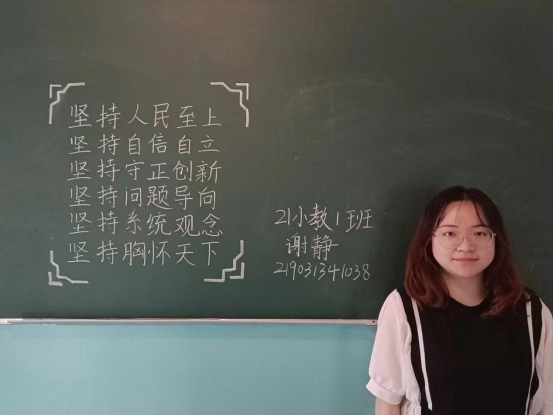 坚持人民至上
坚持自信自立
坚持守正创新
坚持问题导向
坚持系统观念
坚持胸怀天下
21小教1班
谢静
219031341038